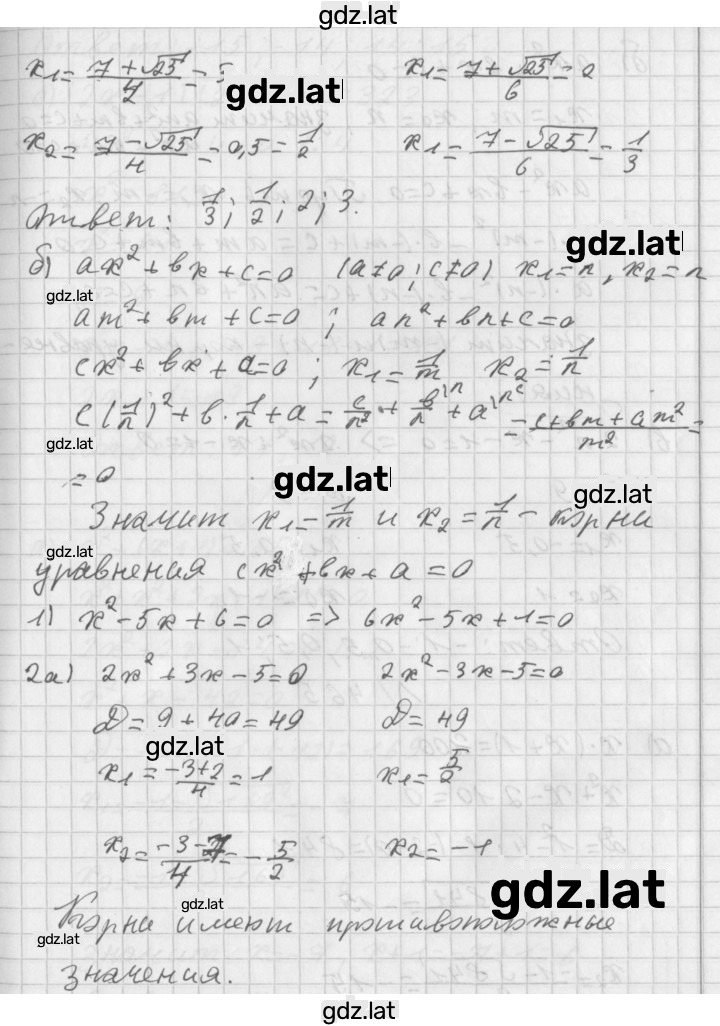 gdz.lat
x₁=(7+√25)/4=3    x₁=(7+√25)/6=2
gdz.lat
x₂=(7-√25)/4=0,5=1/2    x₁=(7-√25)/6=1/3
Ответ: 1/3; 1/2; 2; 3.
gdz.lat
б) ax²+вx+c=0 (a≠0; c≠0) x₁=n, x₂=n
gdz.lat
am²+вm+c=0; an²+вn+c=0
cx²+вx+a=0; x₁=1/m x₂=1/n
c(1/n)²+в·1/n+a=c/n²+в/n+a=(c+вm+am²)/m²=
gdz.lat
=0
gdz.lat
gdz.lat
Значит x₁=1/m и x₂=1/n - корни
gdz.lat
уравнения cx²+вx+a=0
1) x²-5x+6=0 => 6x²-5x+1=0
2a) 2x²+3x-5=0    2x²-3x-5=0
D=9+40=49    D=49
gdz.lat
x₁=(-3+7)/4=1    x₁=5/2
x₂=(-3-7)/4=-5/2    x₂=-1
gdz.lat
Корни имеют противоположные
gdz.lat
значения.
gdz.lat